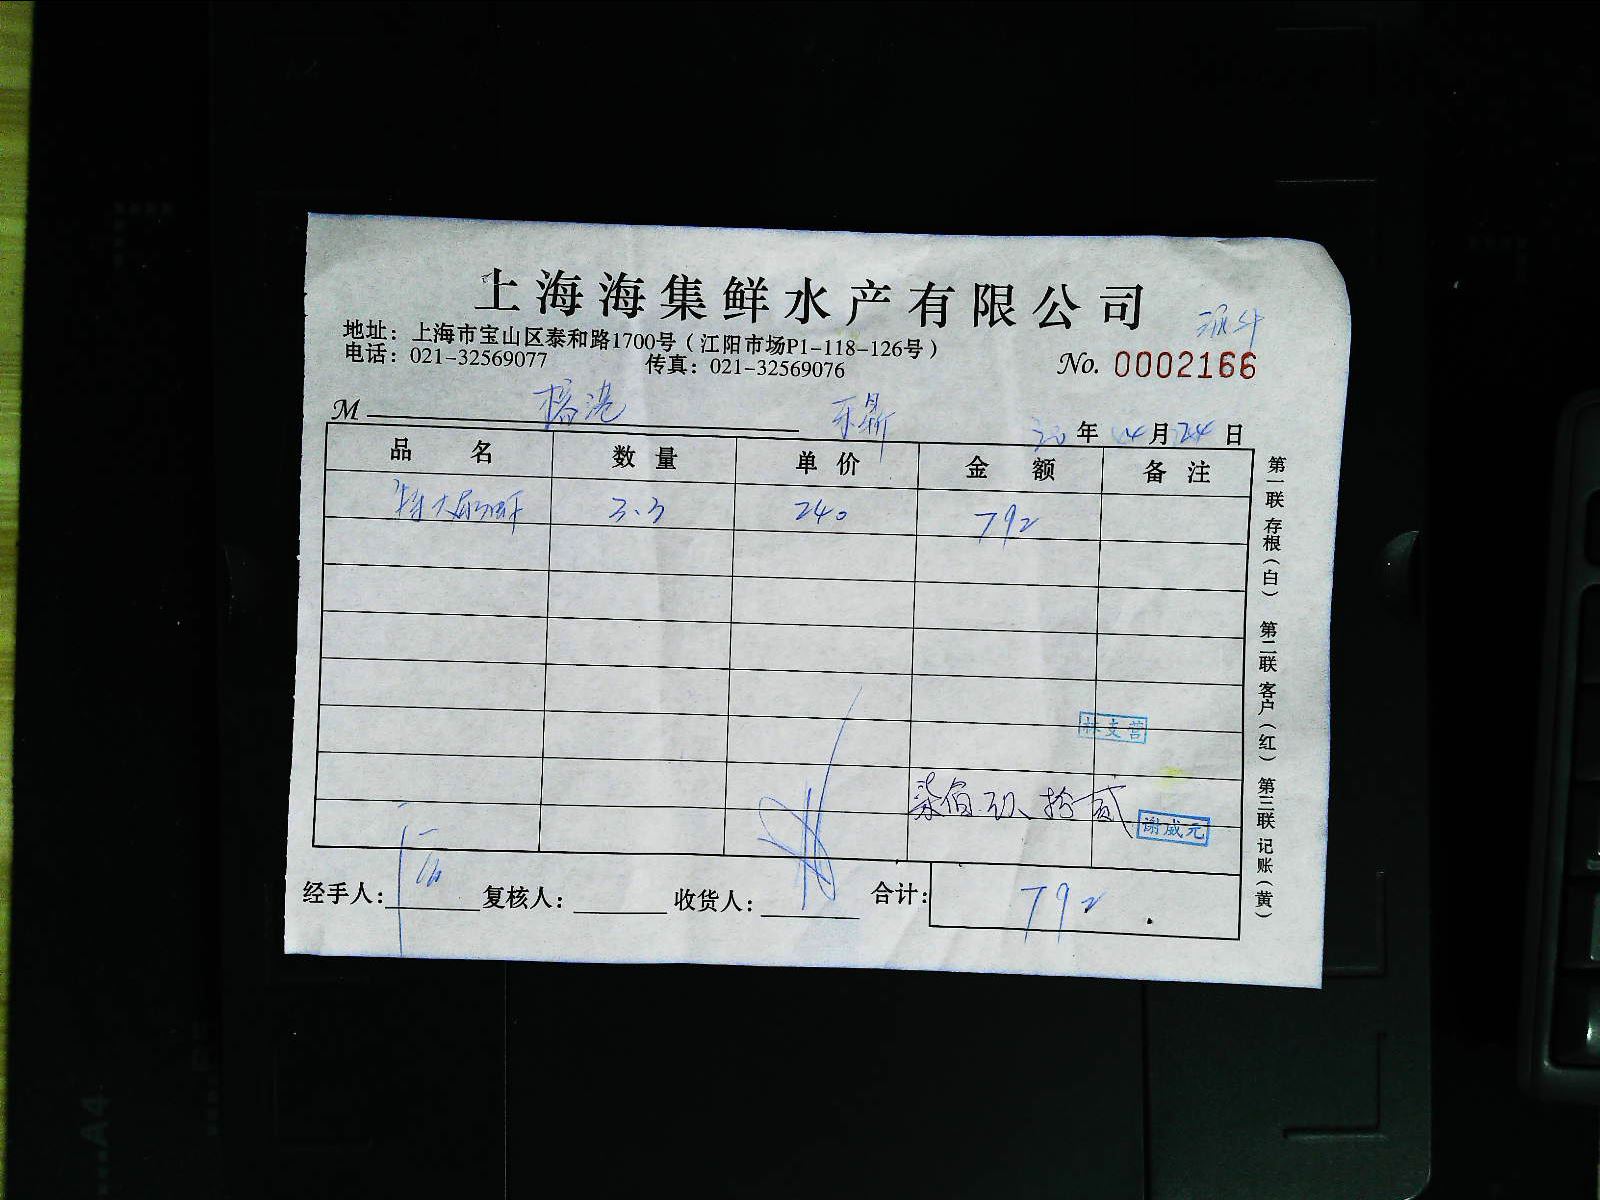 上海海集鲜水产有限公司
地址：上海市宝山区泰和路1700号（江阳市场P1-118-126号）
电话：021-32569077 传真：021-32569076
No. 0002166
M 港
年 月24日
品名 数量 单价 金额 备注
特大 3.3 240 792
柒佰玖拾贰
谢威元
经手人： 复核人： 收货人： 合计： 792
第一联 存根（白） 第二联 客户（红） 第三联 记账（黄）